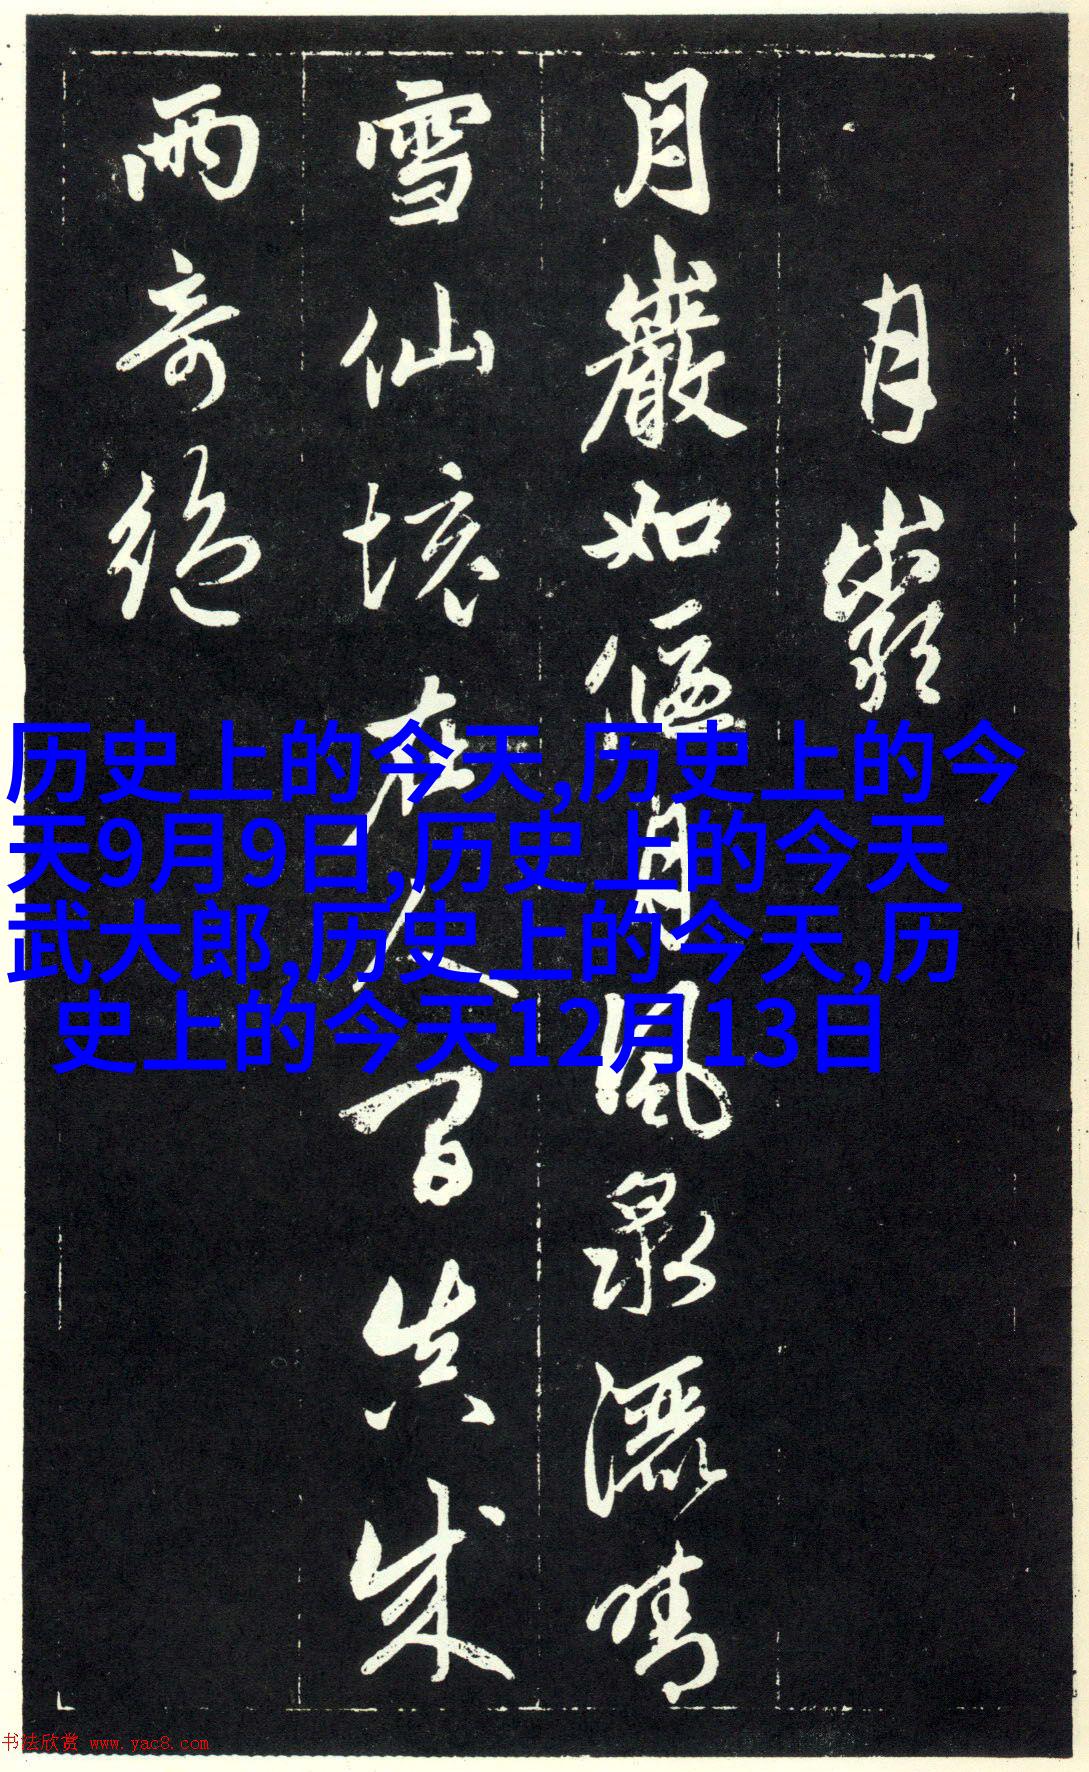 月巖
月巖如偃月風泉灑晴
雪仙境在人間真成
兩奇絕
历史上的今天,历史上的今
天9月9日,历史上的今天
武大郎,历史上的今天,历
史上的今天12月13日
书法欣赏 www.yac8.com